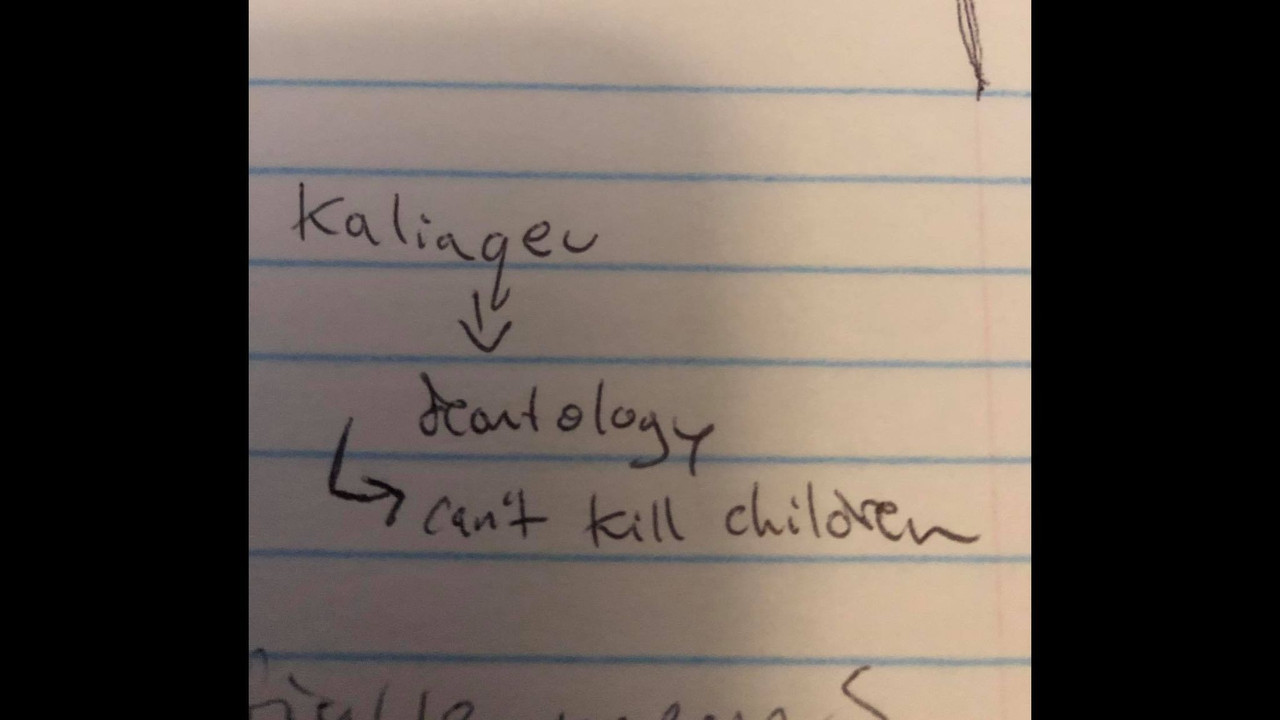 Kaliagev
↓
deontology
↳ can't kill children